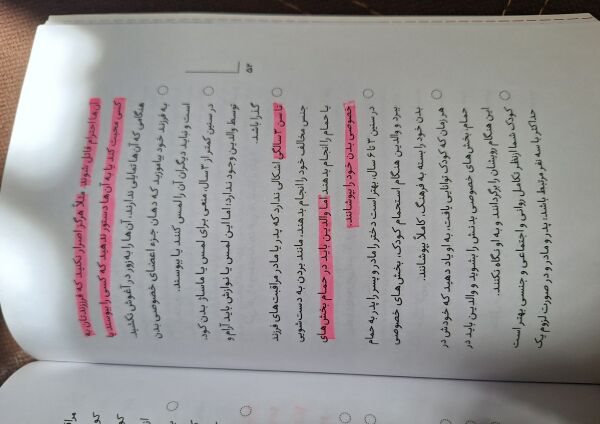 آن‌ها احترام قائل شوند. مثلاً هرگز اصرار نکنید که فرزندتان به
کسی محبت کند یا به آن‌ها دستور ندهید که کسی را ببوسد یا
هنگامی که آن‌ها تمایلی ندارند، آن‌ها را به زور در آغوش نکشید.
به فرزند خود بیاموزید که دهان جزء اعضای خصوصی بدن
است و نباید دیگران آن را لمس کنند یا ببوسند.
در سنین کمتر از ۳ سال، منعی برای لمس یا ماساژ بدن
توسط والدین وجود ندارد؛ اما این لمس یا نوازش باید آرام و
گذرا باشد.
تا سن ۳ سالگی اشکالی ندارد که پدر یا مادر مراقبت‌های فرزند
جنس مخالف خود را انجام بدهند، مانند بردن به دست‌شویی
یا حمام را انجام بدهند اما والدین باید در حمام بخش‌های
خصوصی بدن خود را بپوشانند.
در سنین ۳ تا ۶ سال، بهتر است دختر را مادر و پسر را پدر به حمام
ببرد و والدین هنگام استحمام کودک، بخش‌های خصوصی
بدن خود را بسته به فرهنگ، کاملاً بپوشانند.
هر زمان که کودک توانایی یافت، به او یاد دهید که خودش در
حمام، بخش‌های خصوصی بدنش را بشوید و والدین باید در
این هنگام رویشان را برگردانند و به او نگاه نکنند.
کودک شما از نظر تکامل روانی و اجتماعی و جنسی بهتر است
حداکثر با سه نفر مرتبط باشد: پدر و مادر و در صورت لزوم یک
۵۲